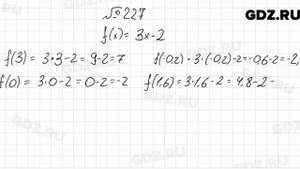 GDZ.RU
№ 227
f(x) = 3x-2
f(3) = 3·3-2 = 9-2=7 f(-0,2) = 3·(-0,2)-2=-0,6-2=-2,
f(0) = 3·0-2 = 0-2=-2 f(1,6) = 3·1,6-2 = 4,8-2 =